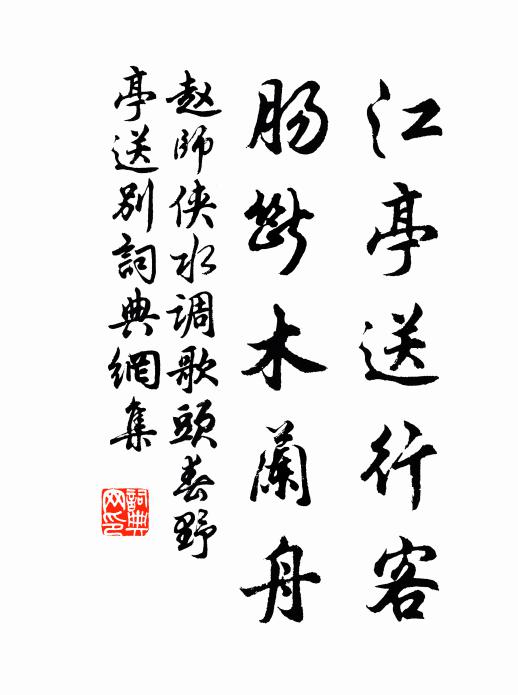 江亭送行客
肠斷木蘭舟
赵師侠水调歌頭春野
亭送别詞典網集
詞典网印